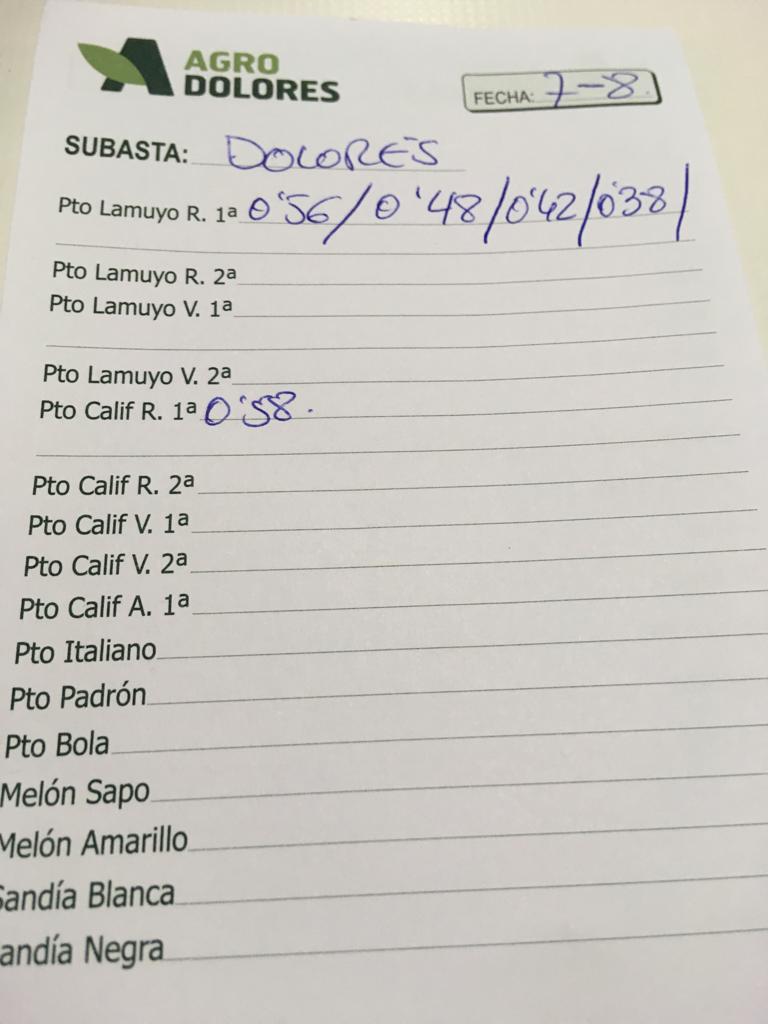 AGRO
DOLORES
FECHA: 7-8.
SUBASTA: DOLORES
Pto Lamuyo R. 1ª 0'56/0'48/0'42/0'38/
Pto Lamuyo R. 2ª
Pto Lamuyo V. 1ª
Pto Lamuyo V. 2ª
Pto Calif R. 1ª 0'58.
Pto Calif R. 2ª
Pto Calif V. 1ª
Pto Calif V. 2ª
Pto Calif A. 1ª
Pto Italiano
Pto Padrón
Pto Bola
Melón Sapo
Melón Amarillo
Sandía Blanca
andía Negra